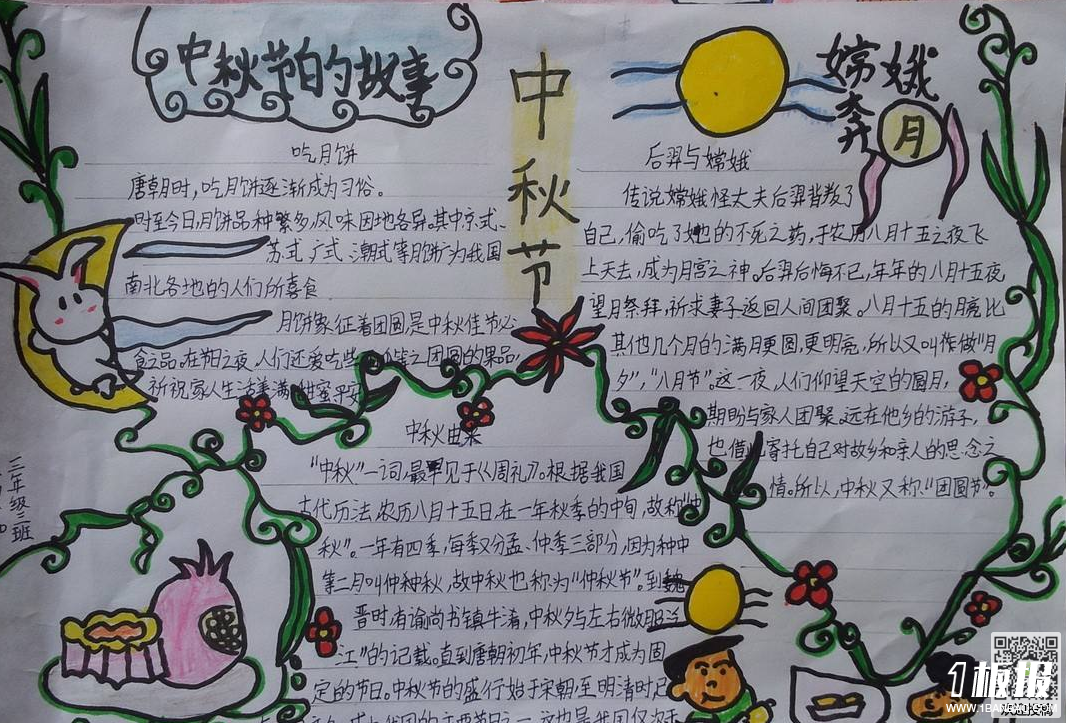 中秋节的故事
吃月饼
唐朝时，吃月饼逐渐成为习俗。
时至今日，月饼品种繁多，风味因地各异。其中京式、
苏式、广式、潮式等月饼广为我国
南北各地的人们所喜食
月饼象征着团圆是中秋佳节必
食之品。在节日之夜，人们还爱吃些
之团圆的果品，
祈祝家人生活美满、甜蜜平安
中秋节
嫦娥
奔
月
后羿与嫦娥
传说嫦娥怪丈夫后羿背叛了
自己，偷吃了她的不死之药，于农历八月十五之夜飞
上天去，成为月宫之神。后羿后悔不已，年年的八月十五夜
望月祭拜，祈求妻子返回人间团聚。八月十五的月亮比
其他几个月的满月更圆，更明亮，所以又叫作做“月
夕”，“八月节”。这一夜，人们仰望天空的圆月，
期盼与家人团聚。远在他乡的游子，
也借此寄托自己对故乡和亲人的思念之
情。所以，中秋又称“团圆节”。
中秋由来
“中秋”一词，最早见于《周礼》。根据我国
古代历法，农历八月十五日，在一年秋季的中旬，故称“中
秋”。一年有四季，每季又分孟、仲季三部分，因为种中
第二月叫仲种秋，故中秋也称为“仲秋节”。到魏
晋时，有谕尚书镇牛淆，中秋夕与左右微服泛
江”的记载。直到唐朝初年，中秋节才成为固
定的节日。中秋节的盛行始于宋朝，至明清时已
三年级三班
1板报
WWW.1BANBAO.COM